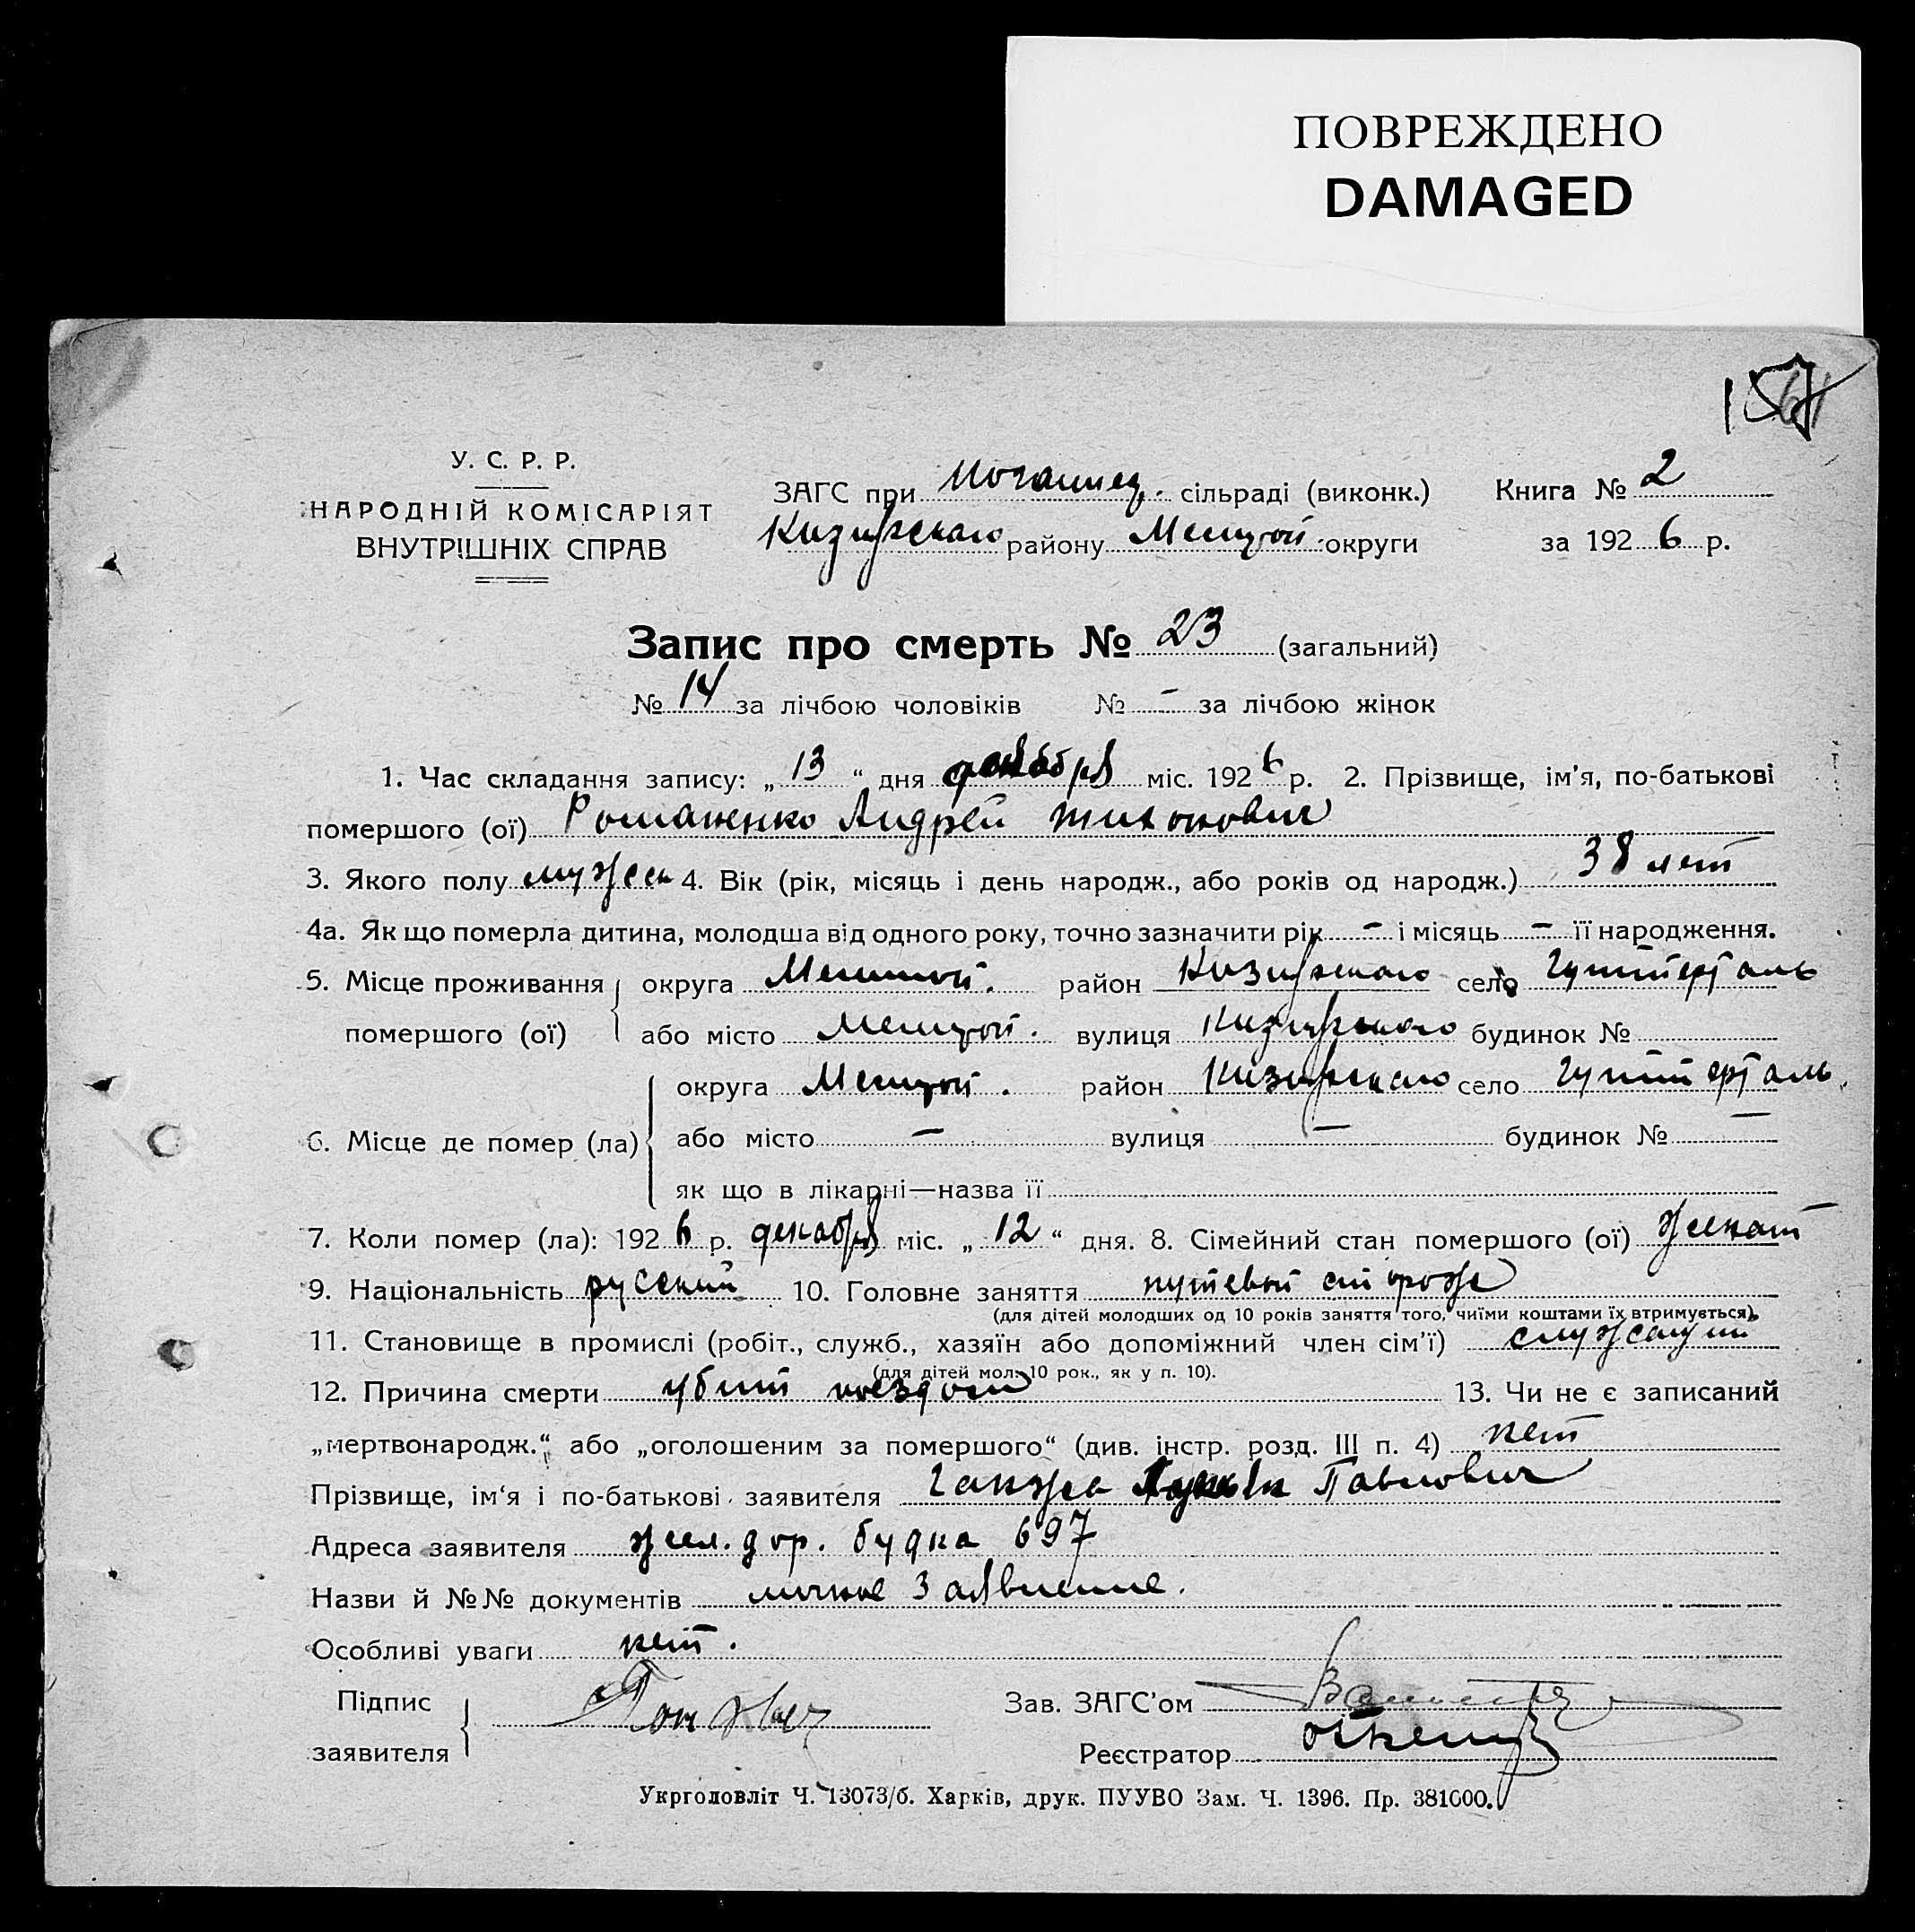 ПОВРЕЖДЕНО
DAMAGED
У. С. Р. Р.
НАРОДНІЙ КОМІСАРІЯТ
ВНУТРІШНІХ СПРАВ
ЗАГС при сільраді (виконк.) Книга № 2
району Мелитой. округи за 1926 р.
Запис про смерть № 23 (загальний)
№ 14 за лічбою чоловіків № - за лічбою жінок
1. Час складання запису: „13“ дня декабря міс. 1926 р. 2. Прізвище, ім'я, по-батькові
помершого (ої) Романенко Андрей Тихонович
3. Якого полу мужск 4. Вік (рік, місяць і день народж., або років од народж.) 38 лет
4а. Як що померла дитина, молодша від одного року, точно зазначити рік - і місяць - її народження.
5. Місце проживання округа Мелитой. район село Гуттерталь
помершого (ої) або місто Мелитой. вулиця будинок №
округа Мелитой. район село Гуттерталь.
6. Місце де помер (ла) або місто - вулиця - будинок № -
як що в лікарні—назва її
7. Коли помер (ла): 1926 р. декабря міс. „12“ дня. 8. Сімейний стан помершого (ої) женат
9. Національність русский 10. Головне заняття путевой сторож
(для дітей молодших од 10 років заняття того, чиїми коштами їх втримується).
11. Становище в промислі (робіт., служб., хазяїн або допоміжний член сім'ї) служащий
(для дітей мол. 10 рок., як у п. 10).
12. Причина смерти убит поездом 13. Чи не є записаний
„мертвонародж.“ або „оголошеним за помершого“ (див. інстр. розд. III п. 4) нет
Прізвище, ім'я і по-батькові заявителя Павлович
Адреса заявителя жел. дор. будка 697
Назви й №№ документів личное заявление.
Особливі уваги нет.
Підпис
заявителя
Зав. ЗАГС'ом
Реєстратор
Укрголовліт Ч. 13073/б. Харків, друк. ПУУВО Зам. Ч. 1396. Пр. 381000.